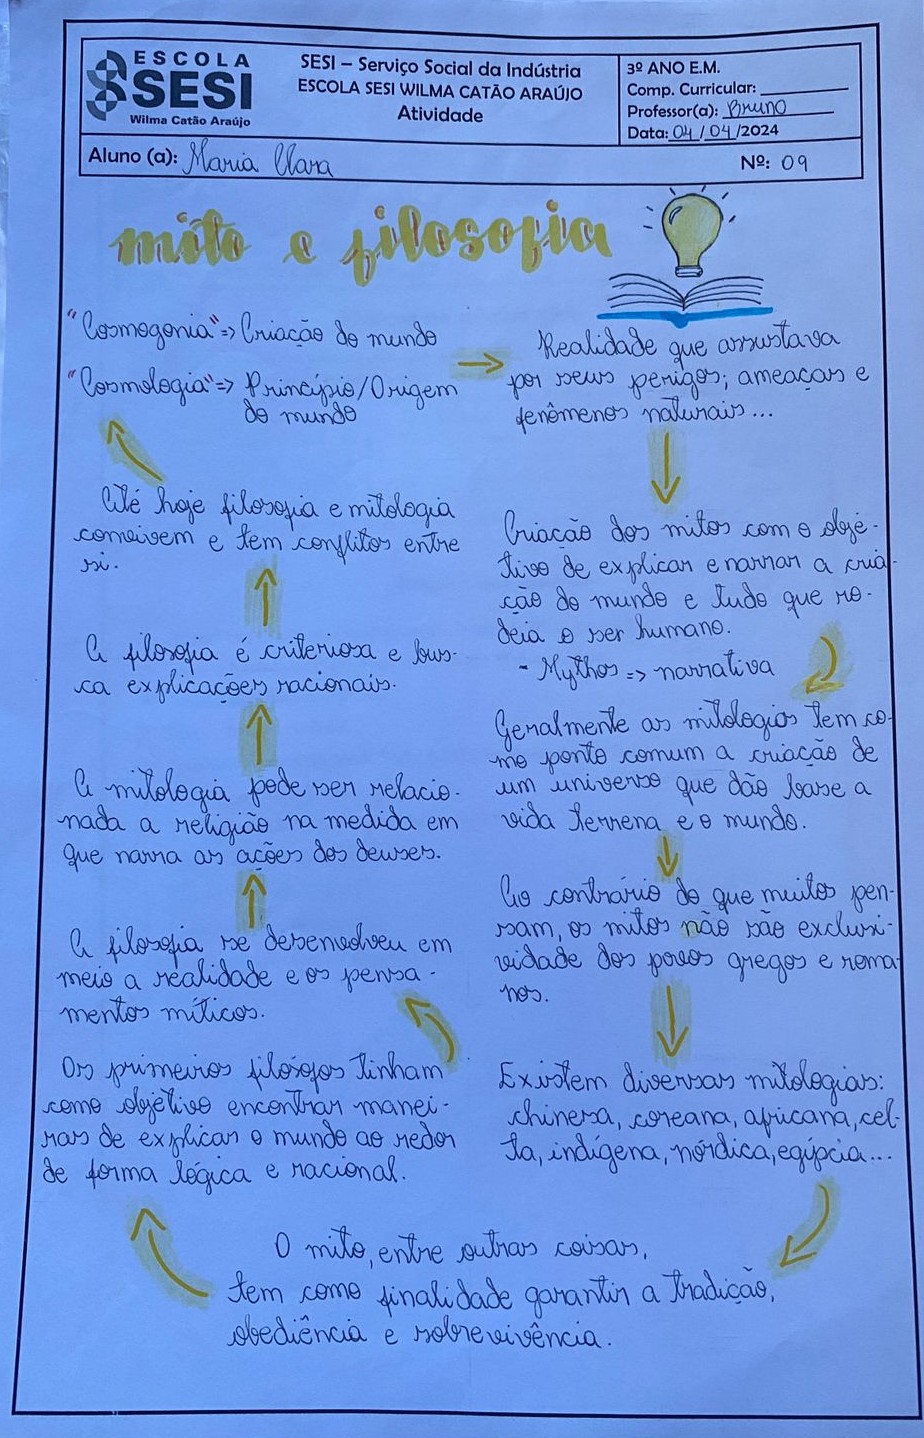 ESCOLA
SESI
Wilma Catão Araújo
SESI – Serviço Social da Indústria
ESCOLA SESI WILMA CATÃO ARAÚJO
Atividade
3º ANO E.M.
Comp. Curricular:
Professor(a): Bruno
Data: 04/04/2024
Aluno (a): Maria Clara
Nº: 09
mito e filosofia
"Cosmogonia" => Criação do mundo
"Cosmologia" => Princípio/Origem
do mundo
Realidade que assustava
por seus perigos; ameaças e
fenômenos naturais...
Criação dos mitos com o obje-
tivo de explicar e narrar a cria-
ção do mundo e tudo que ro-
deia o ser humano.
- Mythos => narrativa
Geralmente as mitologias tem co-
mo ponto comum a criação de
um universo que dão base a
vida terrena e o mundo.
Ao contrário do que muitos pen-
sam, os mitos não são exclusi-
vidade dos povos gregos e roma-
nos.
Existem diversas mitologias:
chinesa, coreana, africana, cel-
ta, indígena, nórdica, egípcia...
O mito, entre outras coisas,
tem como finalidade garantir a tradição,
obediência e sobrevivência.
Os primeiros filósofos tinham
como objetivo encontrar manei-
ras de explicar o mundo ao redor
de forma lógica e racional.
A filosofia se desenvolveu em
meio a realidade e os pensa-
mentos míticos.
A mitologia pode ser relacio-
nada a religião na medida em
que narra as ações dos deuses.
A filosofia é criteriosa e bus-
ca explicações racionais.
Até hoje filosofia e mitologia
convivem e tem conflitos entre
si.